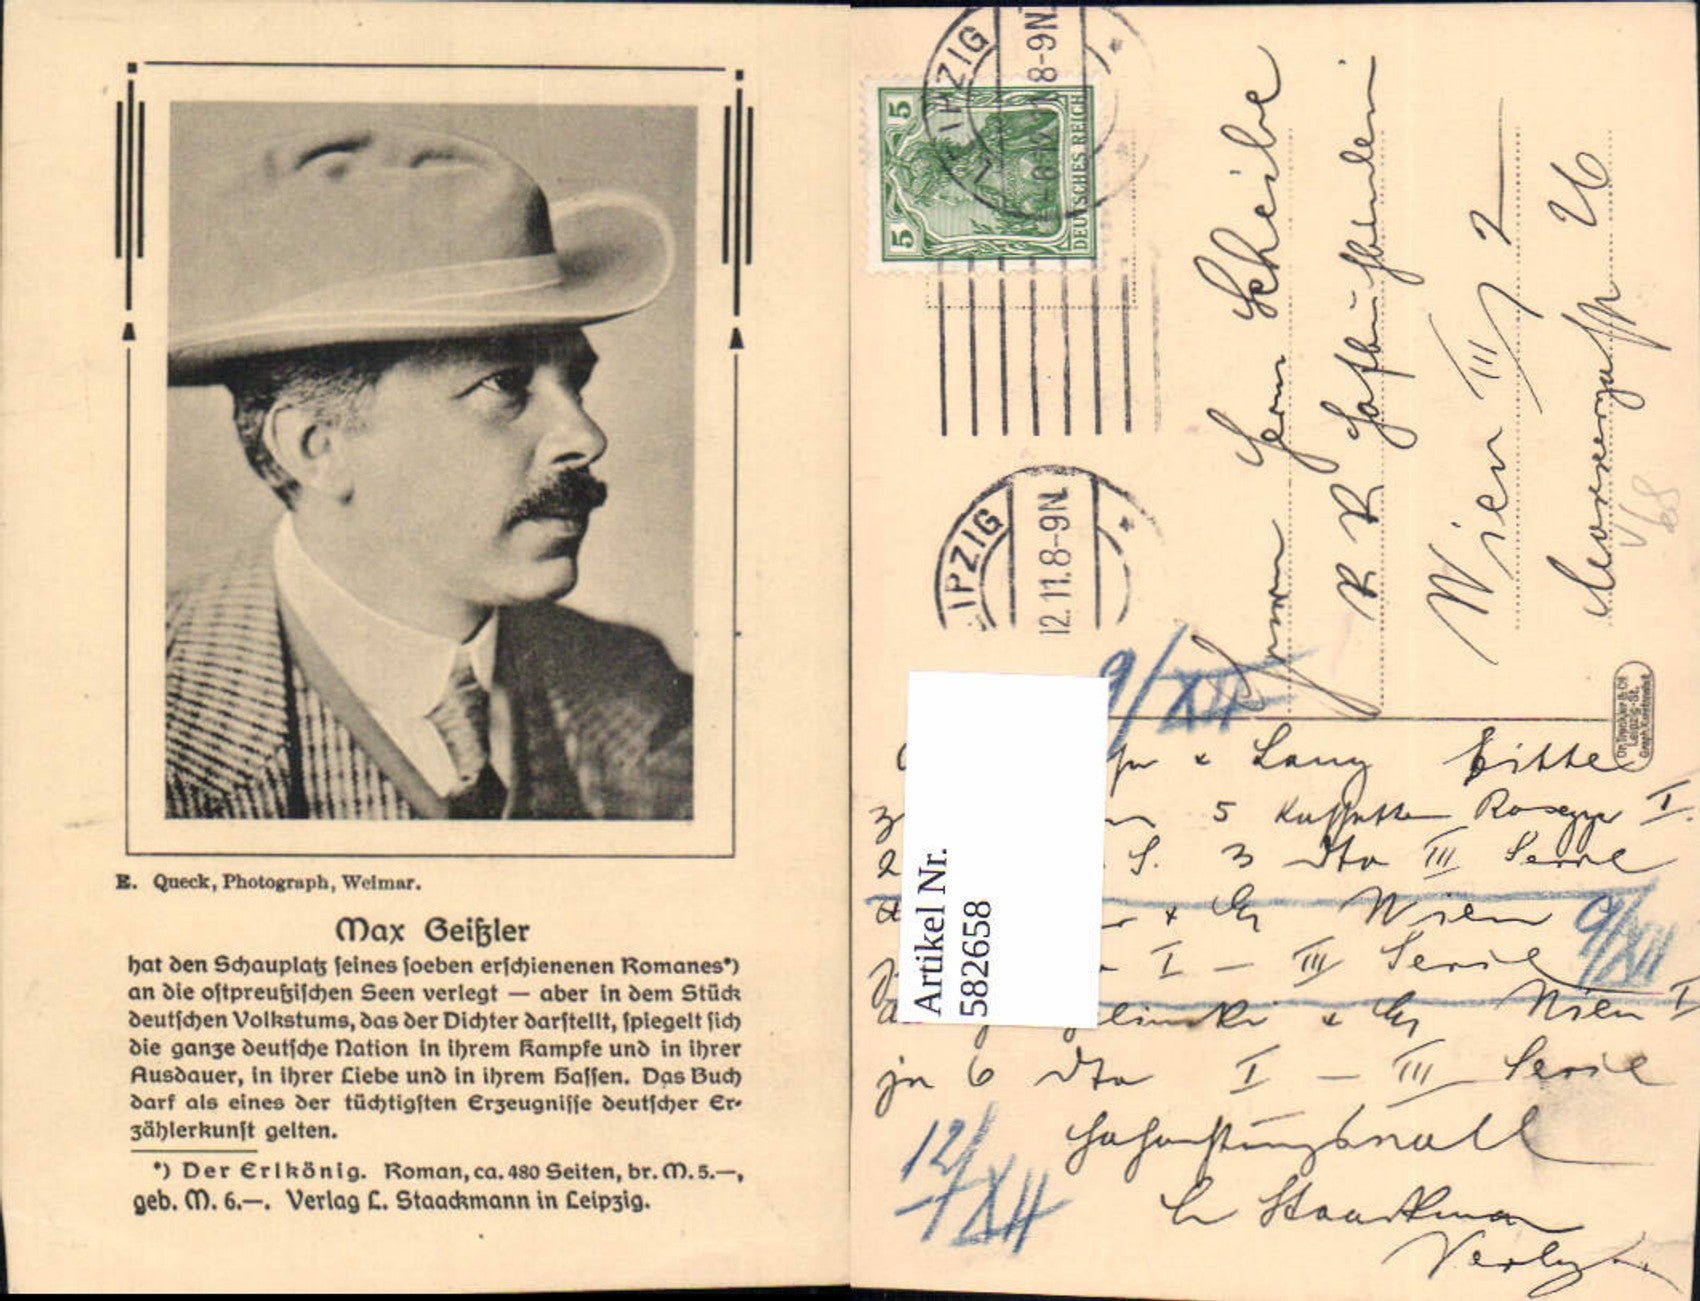 E. Queck, Photograph, Weimar.
Max Geißler
hat den Schauplatz seines soeben erschienenen Romanes*)
an die ostpreußischen Seen verlegt — aber in dem Stück
deutschen Volkstums, das der Dichter darstellt, spiegelt sich
die ganze deutsche Nation in ihrem Kampfe und in ihrer
Ausdauer, in ihrer Liebe und in ihrem Hassen. Das Buch
darf als eines der tüchtigsten Erzeugnisse deutscher Er-
zählerkunst gelten.
*) Der Erlkönig. Roman, ca. 480 Seiten, br. M. 5.—,
geb. M. 6.—. Verlag L. Staackmann in Leipzig.
LEIPZIG
8-9N.
5 5
DEUTSCHES REICH
LEIPZIG
12.11.8-9N.
Herrn Scheibe
K K Hofbuchhandlein
Wien III/2
Marxergasse 26
V68
9/XII
Lang Bitte
5 Rosegger I.
S. 3 dto III Serie
& Cy Wien
9/XII
I — III Serie
& Cy Wien I
je 6 dto I — III Serie
12/XII
Hochachtungsvoll
L Staackmann
Verlag
Artikel Nr.
582658